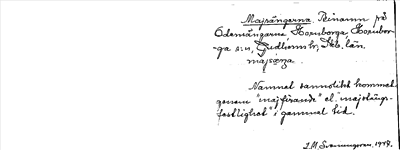 Majrängerna. Binamn på
Ödemängarna Hornborga Hornbor-
ga s:n, Gudhems hr, Skb. län.
Namnet sannolikt kommet
genom "majfirande" el. "majstång-
festlighet" i gammal tid.